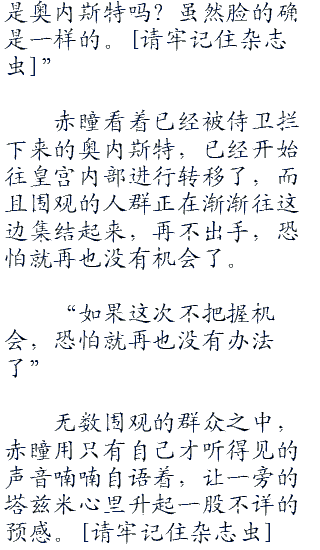 是奥内斯特吗？虽然脸的确
是一样的。[请牢记住杂志
虫]”
赤瞳看着已经被侍卫拦
下来的奥内斯特，已经开始
往皇宫内部进行转移了，而
且围观的人群正在渐渐往这
边集结起来，再不出手，恐
怕就再也没有机会了。
“如果这次不把握机
会，恐怕就再也没有办法
了”
无数围观的群众之中，
赤瞳用只有自己才听得见的
声音喃喃自语着，让一旁的
塔兹米心里升起一股不详的
预感。[请牢记住杂志虫]